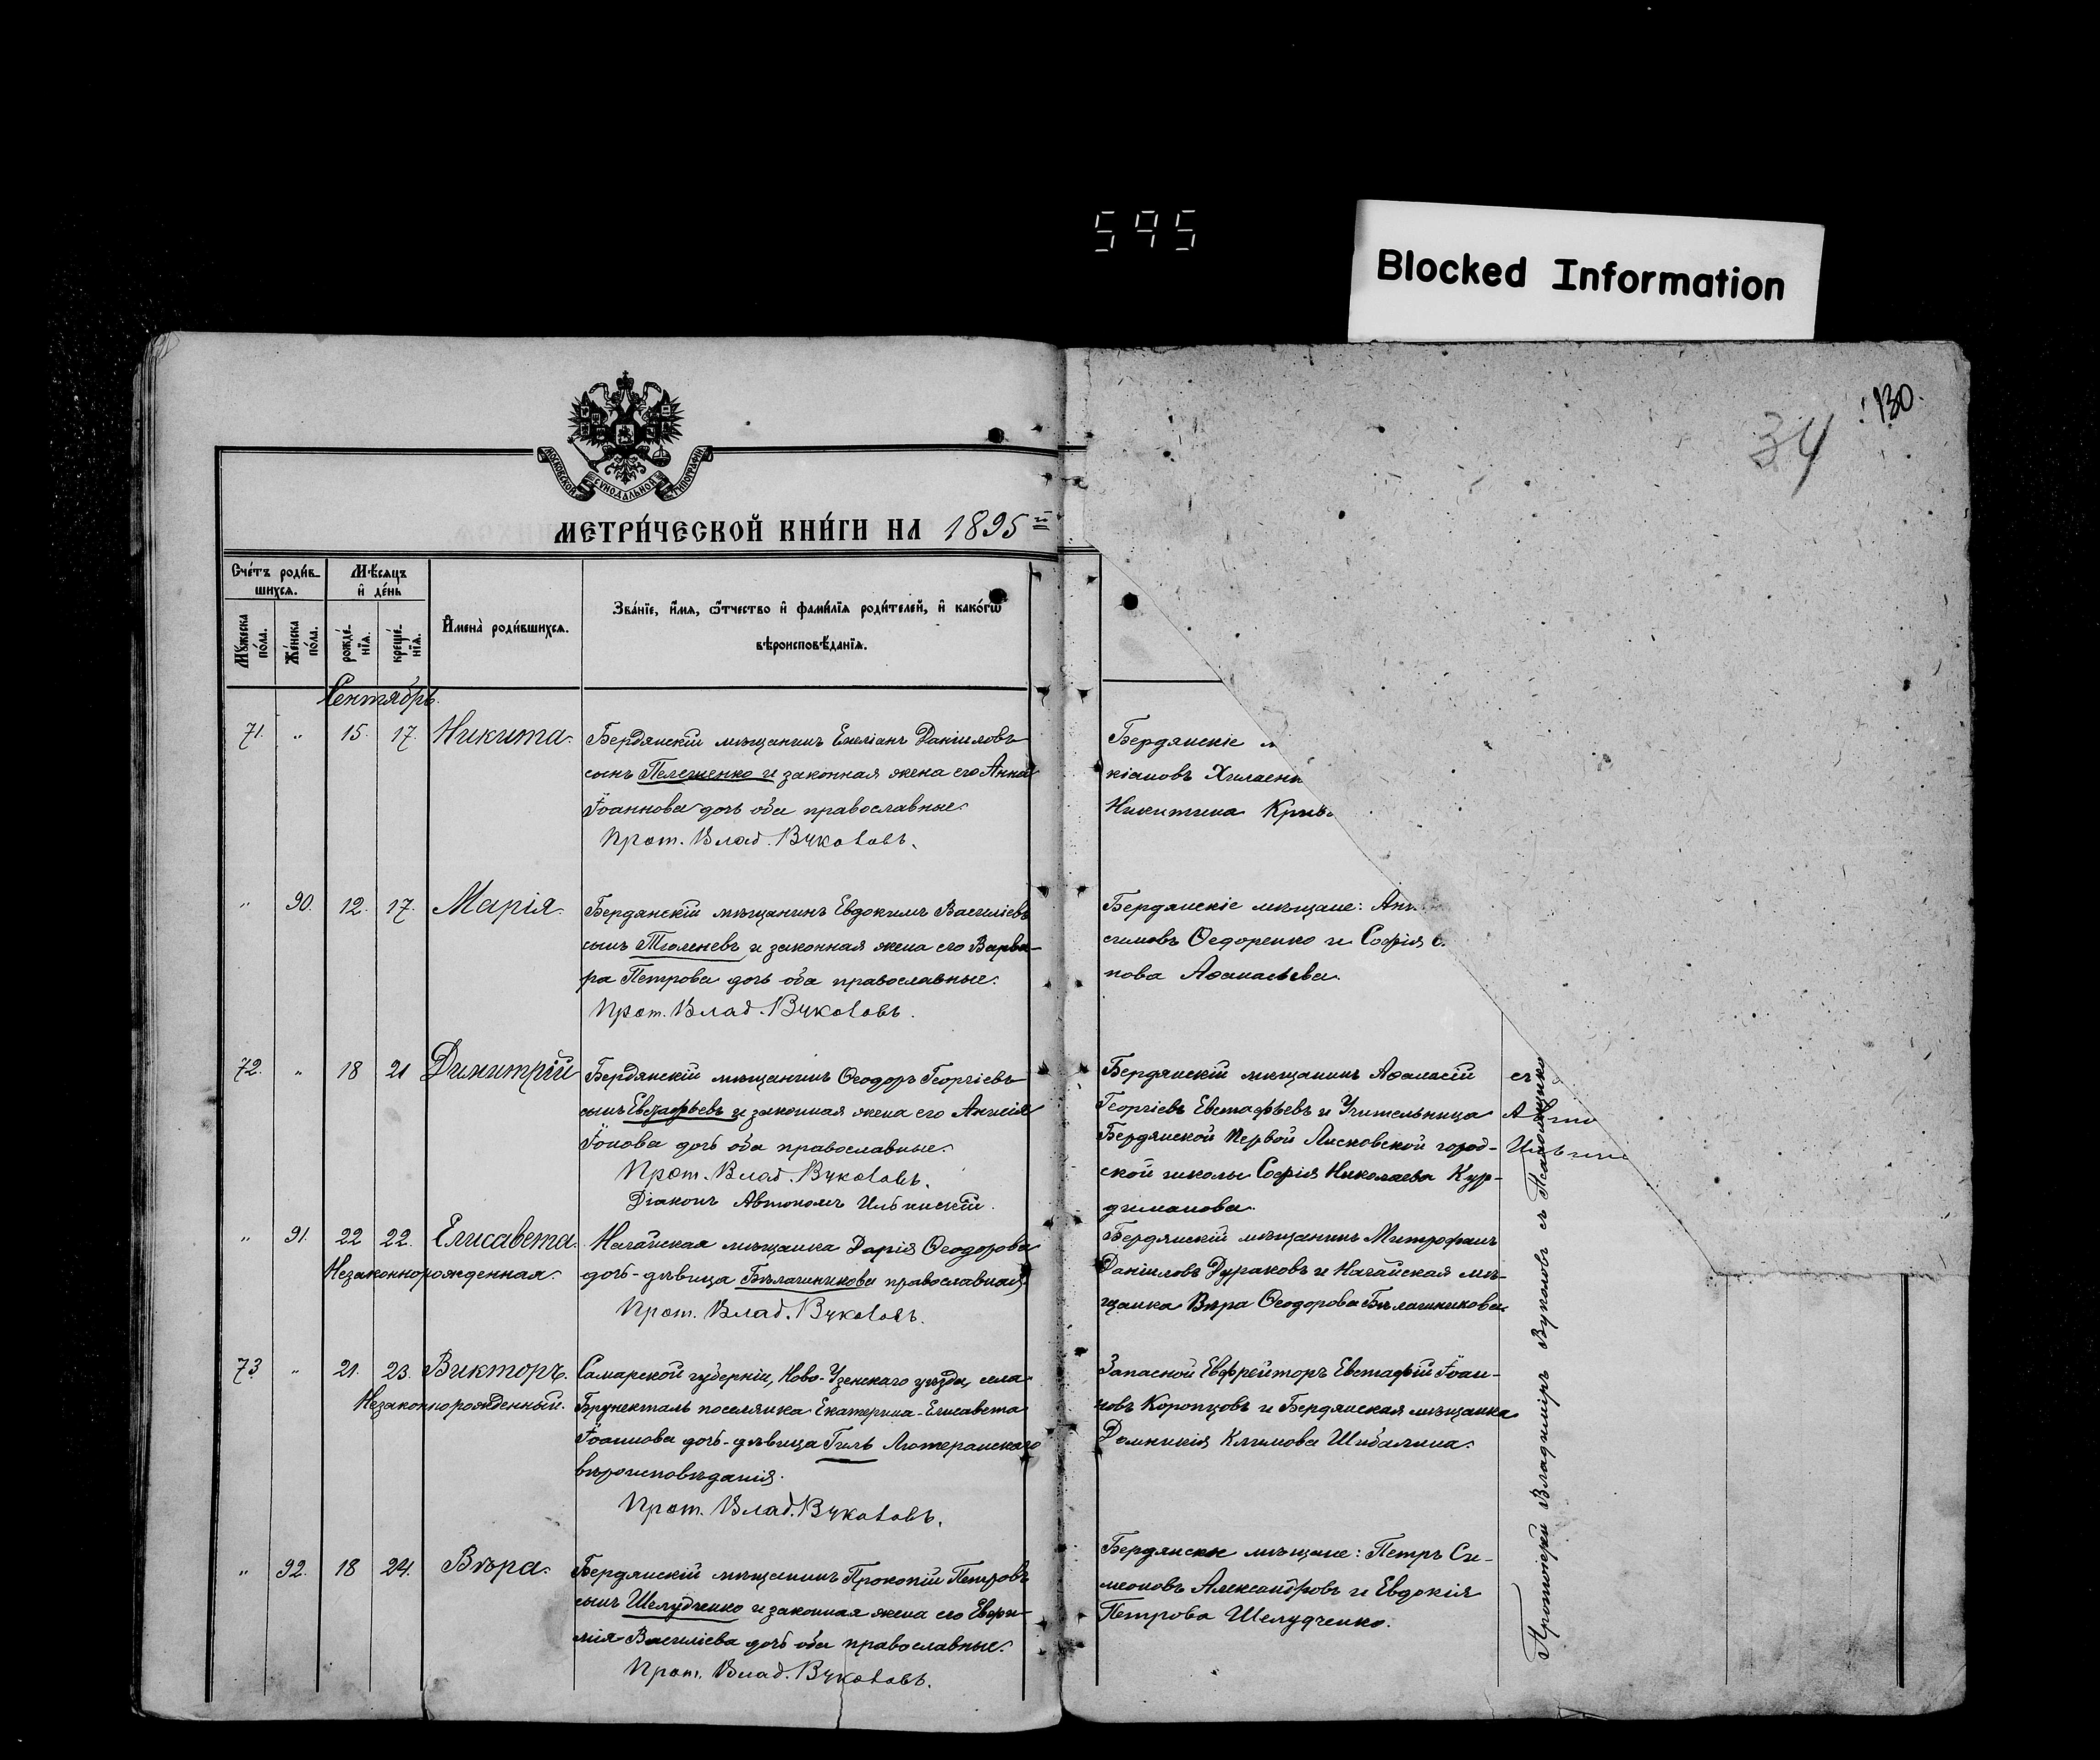 595
Blocked Information
130.
34
МОСКОВСКОЙ СѴНОДАЛЬНОЙ ТИПОГРАФІИ
МЕТРИ́ЧЕСКОЙ КНИ́ГИ НА 1895
Сче́тъ роди́в-
шихся.
Мѣ́сяцъ
и҆ де́нь
Мꙋ́жеска
по́ла.
Же́нска
по́ла.
рожде́-
нїѧ.
креще́-
нїѧ.
И҆мена̀ роди́вшихсѧ.
Зва́нїе, и҆́мѧ, ѻ҆́тчество и҆ фами́лїѧ роди́телей, и҆ како́гѡ
вѣроисповѣ́данїѧ.
Сентябрь.
71. " 15. 17. Никита.
Бердянскій мѣщанинъ Емеліанъ Даніиловъ
сынъ и законная жена его Анна
Іоаннова дочь оба православные.
Прот. Влад. Вукововъ.
Бердянскіе
кіановъ
Никитина
" 90. 12. 17. Марія.
Бердянскій мѣщанинъ Евдокимъ Василіевъ
сынъ Тюленевъ и законная жена его Варва-
ра Петрова дочь оба православные.
Прот. Влад. Вукововъ.
Бердянскіе мѣщане:
симовъ Ѳедоренко и Софія
нова Аѳанасьева.
72. " 18 21 Димитрій
Бердянскій мѣщанинъ Ѳеодоръ Георгіевъ
сынъ Евстафьевъ и законная жена его Анисія
Іонова дочь оба православные.
Прот. Влад. Вукововъ.
Діаконъ Автономъ Ильинскій.
Бердянскій мѣщанинъ Аѳанасій
Георгіевъ Евстафьевъ и Учительница
Бердянской Первой Лисковской город-
ской школы Софія Николаева Кур-
диманова.
" 91. 22 22. Елисавета.
Незаконнорожденная.
Ногайская мѣщанка Дарія Ѳеодорова
дочь-дѣвица Бѣлашникова православная.
Прот. Влад. Вукововъ.
Бердянскій мѣщанинъ Митрофанъ
Даніиловъ Дураковъ и Ногайская мѣ-
щанка Вѣра Ѳеодорова Бѣлашникова.
73 " 21. 23. Викторъ.
Незаконнорожденный.
Самарской губерніи, Ново-Узенскаго уѣзда, села
Брунекталь поселянка Екатерина-Елисавета
Іоаннова дочь-дѣвица Гиль Лютеранскаго
вѣроисповѣданія.
Прот. Влад. Вукововъ.
Запасной Евфрейторъ Евстафій Іоан-
новъ Коропцовъ и Бердянская мѣщанка
Домникія Климова Шибалина.
" 92. 18 24. Вѣра.
Бердянскій мѣщанинъ Прокопій Петровъ
сынъ Шелудченко и законная жена его Евфи-
мія Василіева дочь оба православные.
Прот. Влад. Вукововъ.
Бердянскіе мѣщане: Петръ Си-
меоновъ Александровъ и Евдокія
Петрова Шелудченко.
Протоіерей Владиміръ Вукововъ съ